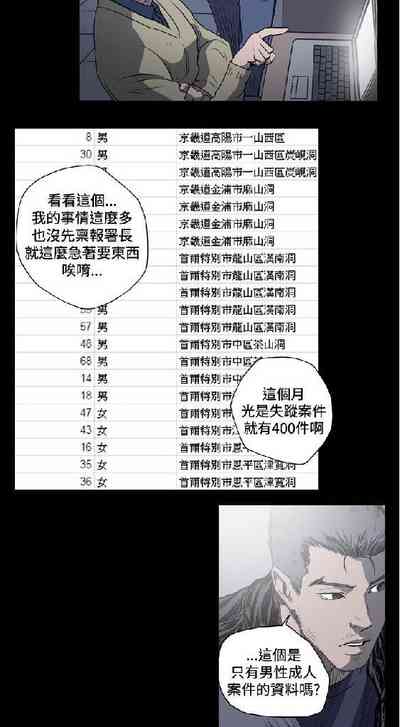 8 男 京畿道高陽市一山西區
30 男 京畿道高陽市一山西區炭峴洞
男 京畿道高陽市一山西區炭峴洞
京畿道金浦市麻山洞
京畿道金浦市麻山洞
京畿道金浦市麻山洞
京畿道金浦市麻山洞
首爾特別市龍山區漢南洞
首爾特別市龍山區漢南洞
首爾特別市龍山區漢南洞
男 首爾特別市龍山區漢南洞
67 男 首爾特別市龍山區漢南洞
46 男 首爾特別市中區茶山洞
68 男 首爾特別市中區茶
14 男 首爾特別市中
18 男 首爾特別市中
47 女 首爾特別市
43 女 首爾特別市
16 女 首爾特別市恩平
35 女 首爾特別市恩平區津寬洞
36 女 首爾特別市恩平區津寬洞
看看這個...
我的事情這麼多
也沒先稟報署長
就這麼急著要東西
唉唷...
這個月
光是失蹤案件
就有400件啊
...這個是
只有男性成人
案件的資料嗎?